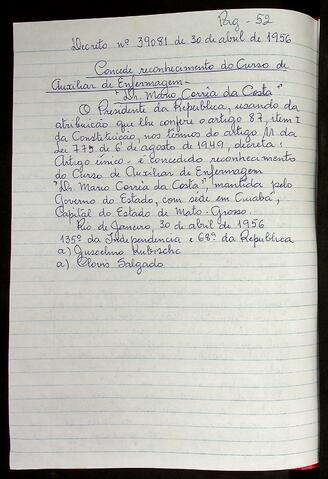 Pag - 52
Decreto nº 39081 de 30 de abril de 1956
Concede reconhecimento do Curso de
Auxiliar de Enfermagem -
"Dr. Mário Corria da Costa"
O Presidente da República, usando da
atribuicão que lhe confere o artigo 87, item I
da Constituicão, nos termos do artigo 11 da
Lei 775 de 6 de agosto de 1949, decreta:
Artigo único - é concedido reconhecimento
do Curso de Auxiliar de Enfermagem
"Dr. Mario Corria da Costa", mantida pelo
Governo do Estado, com sede em Cuiabá,
Capital do Estado de Mato-Grosso.
Rio de Janeiro, 30 de abril de 1956
135º da Independencia e 68º da Republica
a) Juscelino Kubischc
a) Clovis Salgado